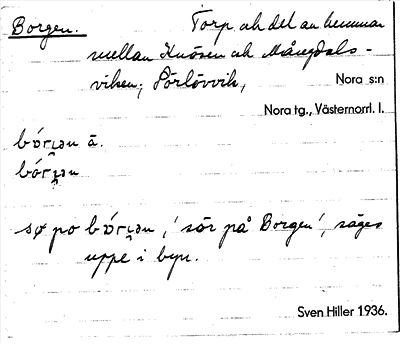 Borgen. Torp och del av hemman
mellan Knösen och Mångdals-
viken; Sörlövvik, Nora s:n
Nora tg., Västernorrl. l.
bórɩ̯ən ā.
bórɩ̯ən
sø po bórɩ̯ən, 'sör på Borgen', säges
uppe i byn.
Sven Hiller 1936.